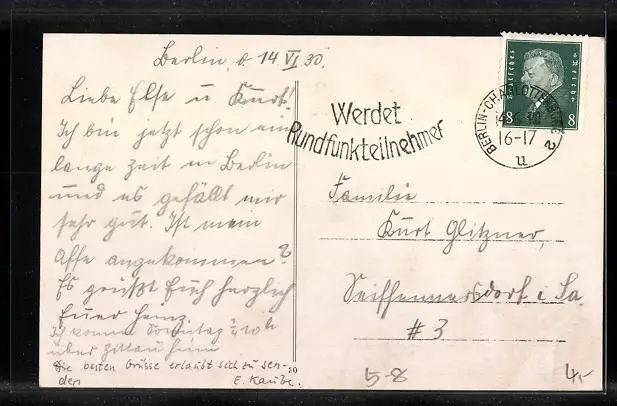 Berlin, d 14 VI 30.
Liebe Else u. Kurt!
Ich bin jetzt schon eine
lange Zeit in Berlin
und es gefällt mir
sehr gut. Ist mein
Affe angekommen?
Es grüßt Euch herzlich
Euer Heinz.
Ich komme Sonntag 10h
über Zittau heim
Die besten Grüsse erlaubt sich zu sen-
den E. Kaube.
30
Werdet
Rundfunkteilnehmer
Deutsches Reich
8 8
BERLIN-CHARLOTTENBURG 2
14.6.30
16-17
u
Familie
Kurt Glitzner,
Seifhennersdorf i. Sa.
# 3
5-8
4,-